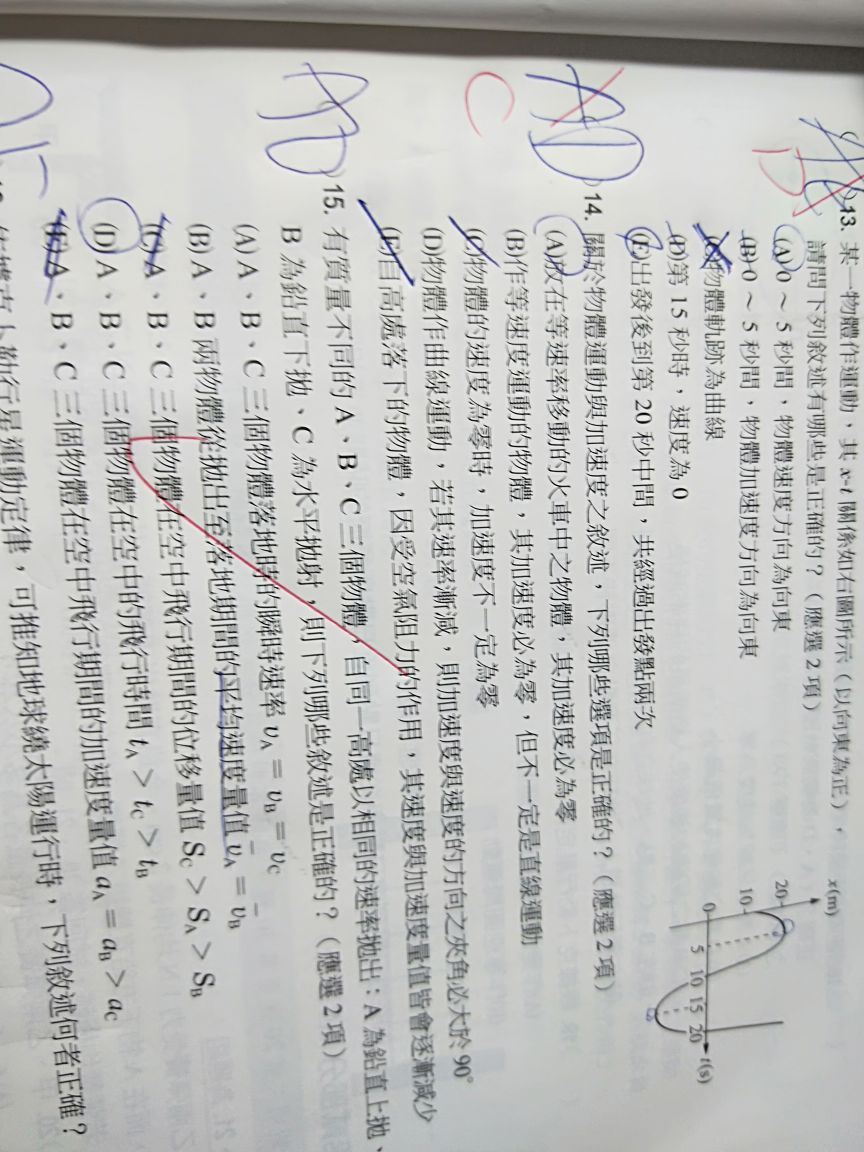 13. 某一物體作運動，其 x-t 關係如右圖所示（以向東為正），
請問下列敘述有哪些是正確的？（應選 2 項）
(A) 0 ~ 5 秒間，物體速度方向為向東
(B) 0 ~ 5 秒間，物體加速度方向為向東
(C)物體軌跡為曲線
(D)第 15 秒時，速度為 0
(E)出發後到第 20 秒中間，共經過出發點兩次
x(m)
20
10
0
5 10 15 20
t(s)
AD
C
14. 關於物體運動與加速度之敘述，下列哪些選項是正確的？（應選 2 項）
(A)放在等速率移動的火車中之物體，其加速度必為零
(B)作等速度運動的物體，其加速度必為零，但不一定是直線運動
(C)物體的速度為零時，加速度不一定為零
(D)物體作曲線運動，若其速率漸減，則加速度與速度的方向之夾角必大於 90°
(E)自高處落下的物體，因受空氣阻力的作用，其速度與加速度量值皆會逐漸減少
AD
15. 有質量不同的 A、B、C 三個物體，自同一高處以相同的速率拋出：A 為鉛直上拋、
B 為鉛直下拋、C 為水平拋射，則下列哪些敘述是正確的？（應選 2 項）
(A) A、B、C 三個物體落地時的瞬時速率 vA = vB = vC
(B) A、B 兩物體從拋出至落地期間的平均速度量值 v̄A = v̄B
(C) A、B、C 三個物體在空中飛行期間的位移量值 SC > SA > SB
(D) A、B、C 三個物體在空中的飛行時間 tA > tC > tB
(E) A、B、C 三個物體在空中飛行期間的加速度量值 aA = aB > aC
律，可推知地球繞太陽運行時，下列敘述何者正確？